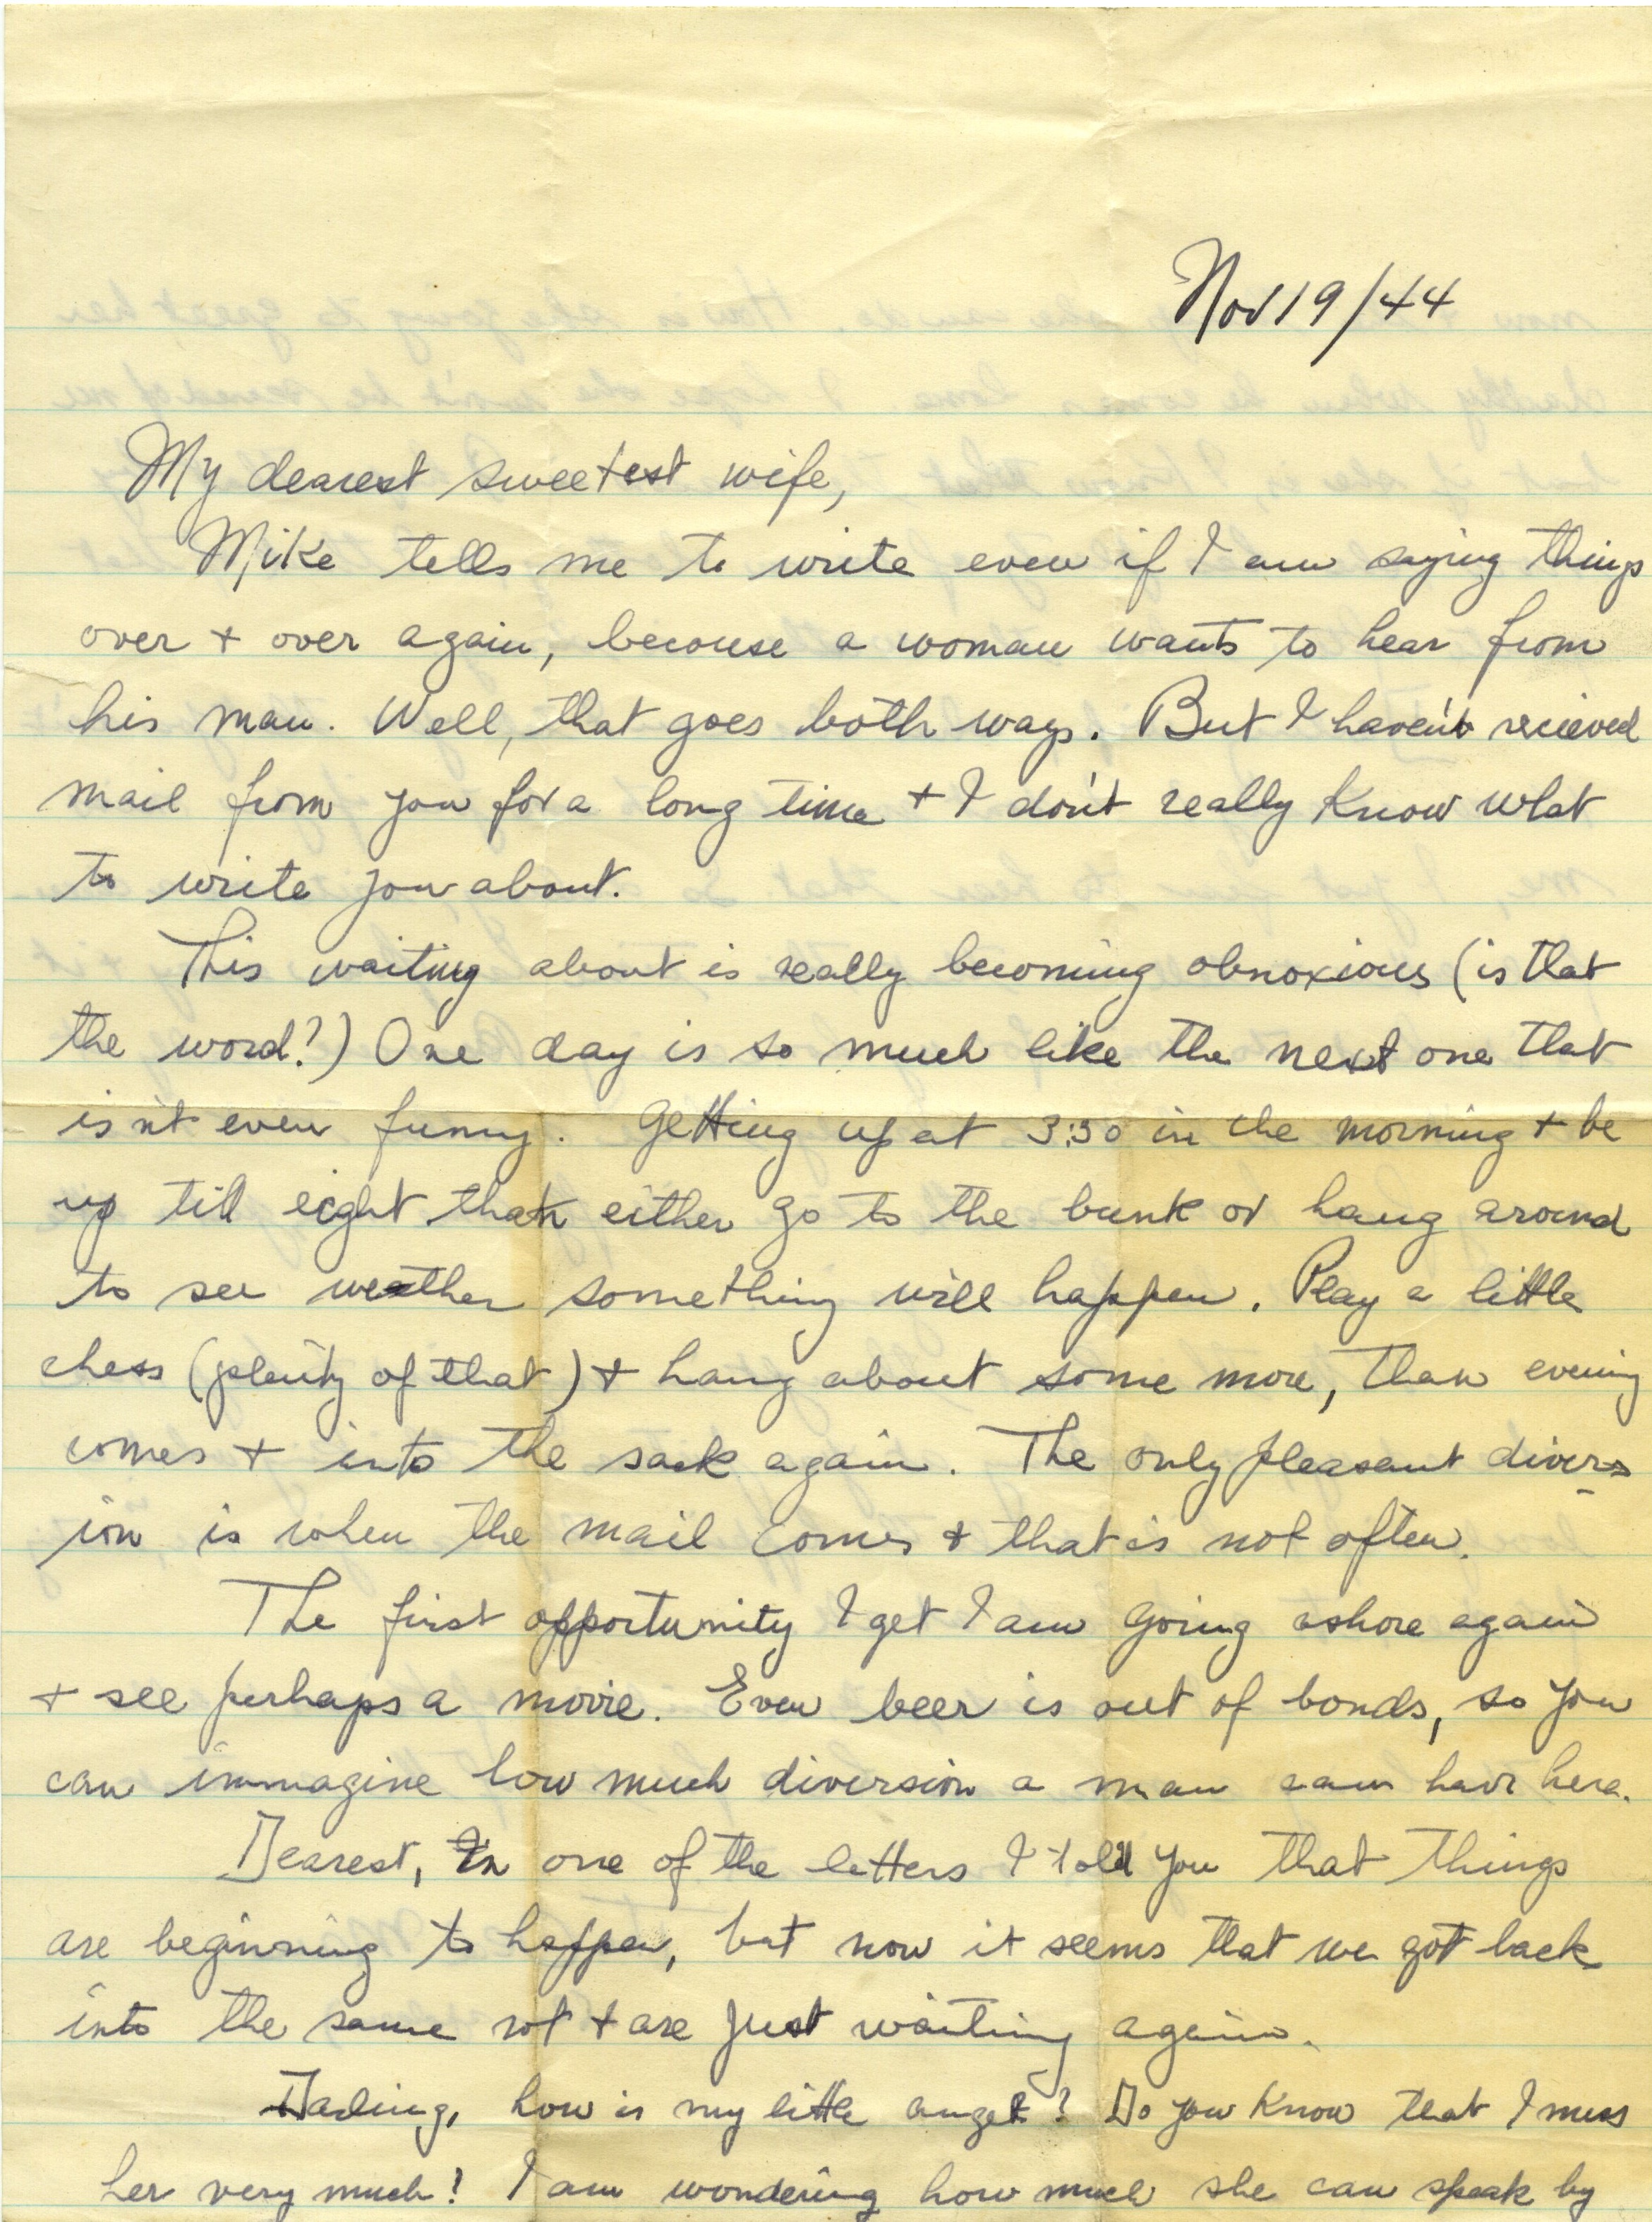 Nov 19/44
My dearest sweetest wife,
Mike tells me to write even if I am saying things
over + over again, becouse a woman wants to hear from
his man. Well, that goes both ways. But I haven't recieved
mail from you for a long time + I don't really know what
to write you about.
This waiting about is really becoming obnoxious (is that
the word?) One day is so much like the next one that
isn't even funny. Getting up at 3:30 in the morning + be
up till eight than either go to the bunk or hang around
to see weather something will happen. Play a little
chess (plenty of that) + hang about some more, than evening
comes + into the sack again. The only pleasant divers-
ion is when the mail comes + that is not often.
The first opportunity I get I am going ashore again
+ see perhaps a movie. Even beer is out of bonds, so you
can immagine how much diversion a man can have here.
Dearest, In one of the letters I told you that things
are beginning to happen, but now it seems that we got back
into the same rot + are just waiting again.
Darling, how is my little angel? Do you know that I miss
her very much! I am wondering how much she can speak by